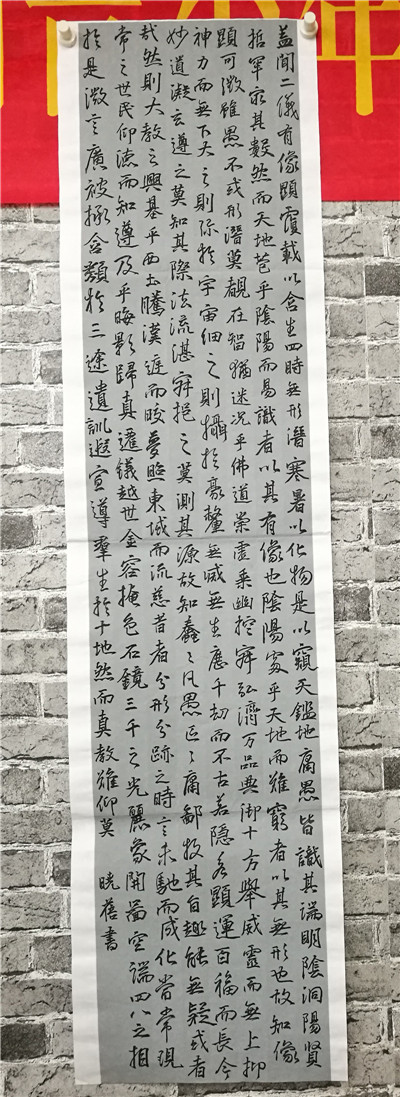 盖聞二儀有像顯覆載以含生四時無形潛寒暑以化物是以窺天鑑地庸愚皆識其端明陰洞陽賢
哲罕窮其數然而天地苞乎陰陽而易識者以其有像也陰陽處乎天地而難窮者以其無形也故知像
顯可徵雖愚不或形潛莫覩在智猶迷况乎佛道崇虛乘幽控寂弘濟万品典御十方舉威靈而無上抑
神力而無下大之則弥於宇宙細之則攝於豪釐無滅無生歷千劫而不古若隱若顯運百福而長今
妙道凝玄遵之莫知其際法流湛寂挹之莫測其源故知蠢々凡愚區々庸鄙投其旨趣能無疑或者
哉然則大教之興基乎西土騰漢庭而皎夢照東域而流慈昔者分形分跡之時言未馳而成化當常現
常之世民仰德而知遵及乎晦影歸真遷儀越世金容掩色石鏡三千之光麗象開圖空端四八之相
於是微言廣被拯含類於三途遺訓遐宣導羣生於十地然而真教難仰莫
曉蓓書